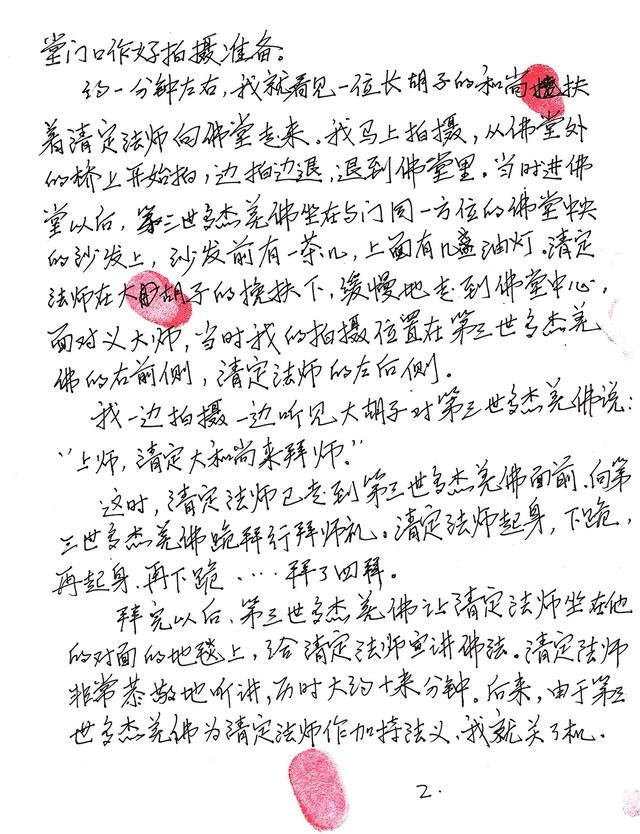 堂门口作好拍摄准备。
约一分钟左右，我就看见一位长胡子的和尚搀扶
着清定法师向佛堂走来。我马上拍摄，从佛堂外
的桥上开始拍，边拍边退，退到佛堂里。当时进佛
堂以后，第三世多杰羌佛坐在与门同一方位的佛堂中央
的沙发上，沙发前有一茶几，上面有几盏油灯。清定
法师在大胡子的搀扶下，缓慢地走到佛堂中心，
面对义大师，当时我的拍摄位置在第三世多杰羌
佛的右前侧，清定法师的左后侧。
我一边拍摄一边听见大胡子对第三世多杰羌佛说：
“上师，清定大和尚来拜师。”
这时，清定法师已走到第三世多杰羌佛面前、向第
三世多杰羌佛跪拜行拜师礼。清定法师起身，下跪，
再起身、再下跪····拜了四拜。
拜完以后、第三世多杰羌佛让清定法师坐在他
的对面的地毯上，给清定法师宣讲佛法。清定法师
非常恭敬地听讲，历时大约十来分钟。后来，由于第三
世多杰羌佛为清定法师作加持法义、我就关了机。
2.